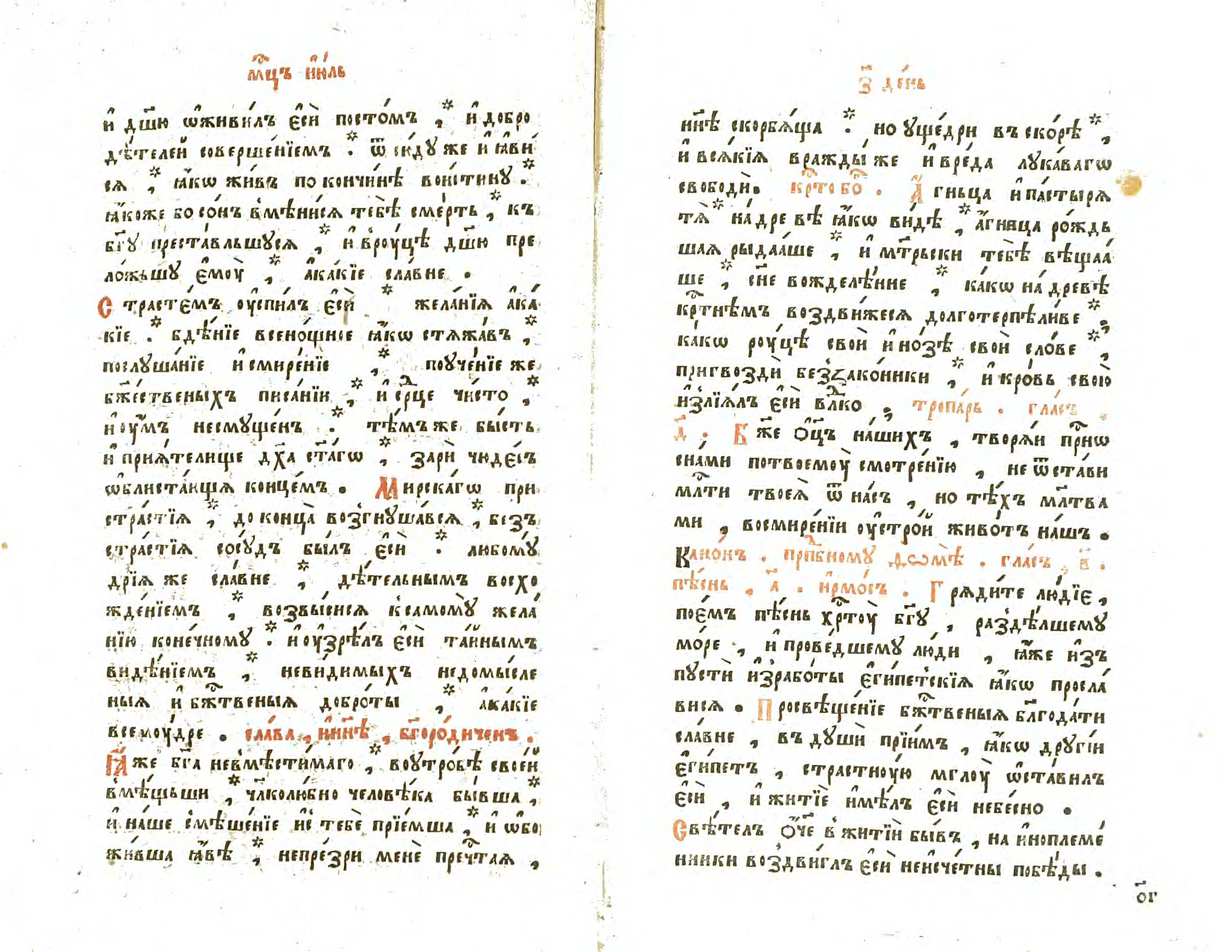 мц҃ъ і҆ю́ль
и҆ дш҃ю ѡ҆живи́лъ є҆сѝ посто́мъ , * и҆ добро
дѣ́телей соверше́нїемъ . * ѿ сю́дуже и҆ ꙗ҆ви́
сѧ , * ꙗ҆́кѡ живъ по кончи́нѣ вои́стину . *
ꙗ҆́коже бо со́нъ вмѣни́сѧ тебѣ̀ сме́рть , * къ
бг҃у преста́вльшусѧ , * и҆ в роу́цѣ дш҃ю пре
ло́жьшу є҆моу̀ , * а҆ка́кїе сла́вне .
С трасте́мъ оу҆спи́лъ є҆сѝ * жела́нїѧ а҆ка́
кїе . * бдѣ́нїе всено́щное ꙗ҆́кѡ стѧжа́въ , *
послуша́нїе и҆ смире́нїе , * поуче́нїе же
бж҃ественыхъ писа́нїи , * и҆ ср҃це чи́сто , *
и҆ оу҆́мъ несмуще́нъ . * тѣ́мъ же бы́сть
и҆ прїѧ́телище дх҃а ст҃а́гѡ , * зари́ чюде́съ
ѡ҆блиста́ющїѧ конце́мъ . Мирска́гѡ при
стра́стїѧ , * до конца̀ возгнуша́всѧ , * безъ
стра́стїѧ сосу́дъ бы́лъ є҆сѝ . * любому́
дрїѧ же сла́вне , * дѣ́тельнымъ восхо
жде́нїемъ , * возвы́сисѧ к самому̀ жела́
нїю коне́чному . * и҆ оу҆зрѣ́лъ є҆сѝ та́йнымъ
видѣ́нїемъ , * неви́димыхъ недомы́сле
ныѧ и҆ бж҃твеныѧ добро́ты , * а҆ка́кїе
всемоу́дре . сла́ва , ны́нѣ , бг҃оро́диченъ .
Ꙗ҆́же бг҃а невмѣсти́маго , * во оу҆тро́бѣ свое́й
вмѣ́щьши , * чл҃колю́бно человѣ́ка бы́вша , *
и҆ на́ше смѣше́нїе и҆с тебѐ прїе́мша , * и҆ ѡ҆бо
жи́вша ꙗ҆́вѣ , * не пре́зри менѐ преч҃таѧ ,
з҃ де́нь
ны́нѣ скорбѧ́ща . * но ущедри въ ско́рѣ , *
и҆ всѧ́кїѧ вражды́ же и҆ вре́да лука́вагѡ
свободи . кр҃то бо҃ . А҆ гньца и҆ па́стырѧ
тѧ̀ * на́ дре вѣ ꙗ҆́кѡ ви́дѣ , * а҆́гница ро́ждь
шаѧ рыда́аше , * и҆ мт҃рьски тебѣ̀ вѣща́а
ше , * сн҃е вожделѣ́нне , * ка́кѡ на́ древѣ
кр҃тнѣмъ воздви́жесѧ долготерпѣли́ве ; *
ка́кѡ роу́цѣ свои и҆ но́зѣ свои сло́ве , *
пригвозди́ беззако́нники , * и҆ кро́вь свою̀
и҆злїѧ́лъ є҆сѝ вл҃ко ; тропа́рь . гла́съ ,
д҃ . Б҃ же ѻ҆ц҃ъ на́шихъ , творѧ́и при́сѡ
снами по твоемоу̀ смотре́нїю , не ѿста́ви
мл҃ти твоеѧ̀ ѿ на́съ , но тѣ́хъ мл҃тва
ми , во смире́нїи оу҆стро́й живо́тъ на́шъ .
Кано́нъ . прп҃бному ѳѡмѣ́ . гла́съ , в҃ .
пѣ́снь , а҃ . і҆рмо́съ . Г рѧди́те лю́дїе ,
пое́мъ пѣ́снь хр҃тоу̀ бг҃у , раздѣ́лшему
мо́ре , и҆ прове́дшему лю́ди , ꙗ҆́же и҆зъ
пустѝ и҆зрабо́ты є҆ги́петскїѧ ꙗ҆́кѡ просла́
висѧ . П росвѣще́нїе бж҃твеныѧ бл҃года́ти
сла́вне , въ ду́ши прїи́мъ , ꙗ҆́кѡ други́и
є҆ги́петъ , стра́стноую мглоу̀ ѡ҆ста́вилъ
є҆сѝ , и҆ житїѐ и҆мѣ́лъ є҆сѝ небе́сно .
С вѣ́телъ ѻ҆́ч҃е в житїи́ бы́въ , на и҆ноплеме́
нники воздви́глъ є҆сѝ неисче́тны побѣ́ды .
ог҃